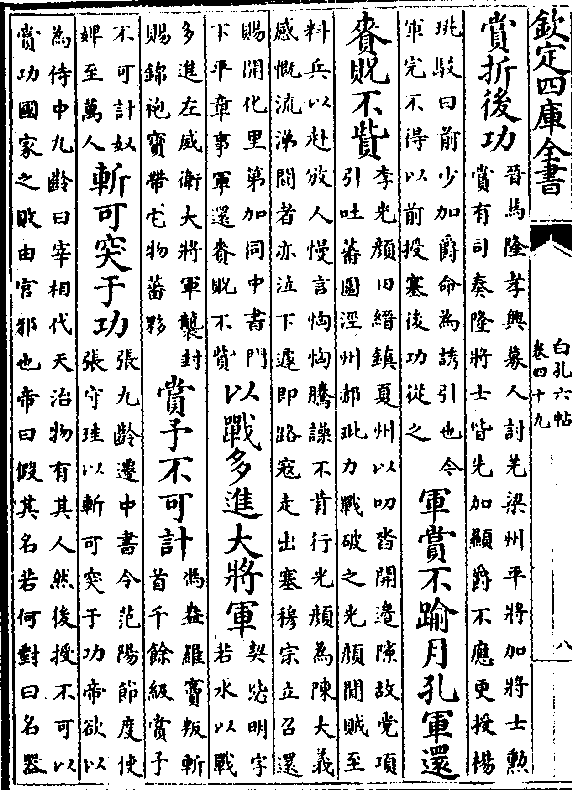 欽定四庫全書
白孔六帖
卷四十九
八
賞折後功
晉馬隆孝興募人討羌梁州平將加將士勲
賞有司奏隆將士皆先加顯爵不應更授楊
珧駮曰前少加爵命為誘引也今
軍完不得以前授塞後功從之
軍賞不踰月孔軍還
賚貺不貲
李光顔田縉鎮夏州以叨沓開邊隙故党項
引吐蕃圍涇州郝玼力戰破之光顔聞賊至
料兵以赴放人慢言恟恟騰譟不肯行光顔為陳大義
感慨流涕聞者亦泣下遽即路寇走出塞穆宗立召還
賜開化里第加同中書門
下平章事軍還賚貺不貲
以戰多進大將軍
契苾明字
若水以戰
多進左威衛大將軍襲封
賜錦袍寶帶它物蕃夥
賞予不可計
馮盎羅竇叛斬
首千餘級賞予
不可計奴
婢至萬人
斬可突于功
張九齡遷中書令范陽節度使
張守珪以斬可突于功帝欲以
為侍中九齡曰宰相代天治物有其人然後授不可以
賞功國家之敗由官邪也帝曰假其名若何對曰名器